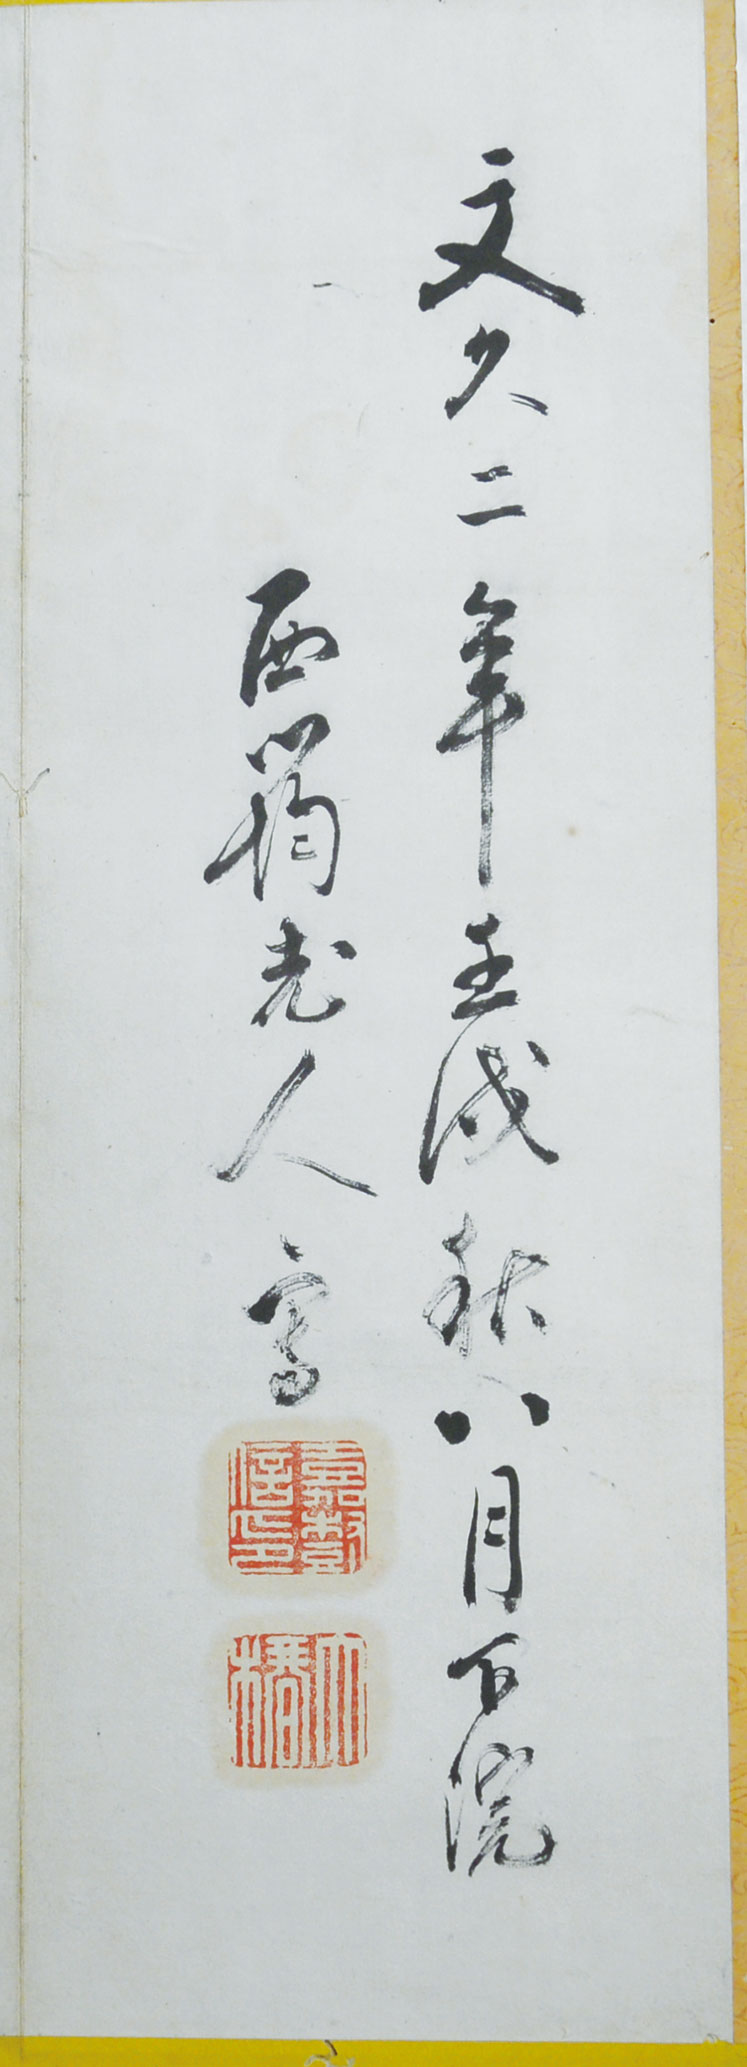 文久二年壬戌秋八月下浣
西筠老人寫
大橋